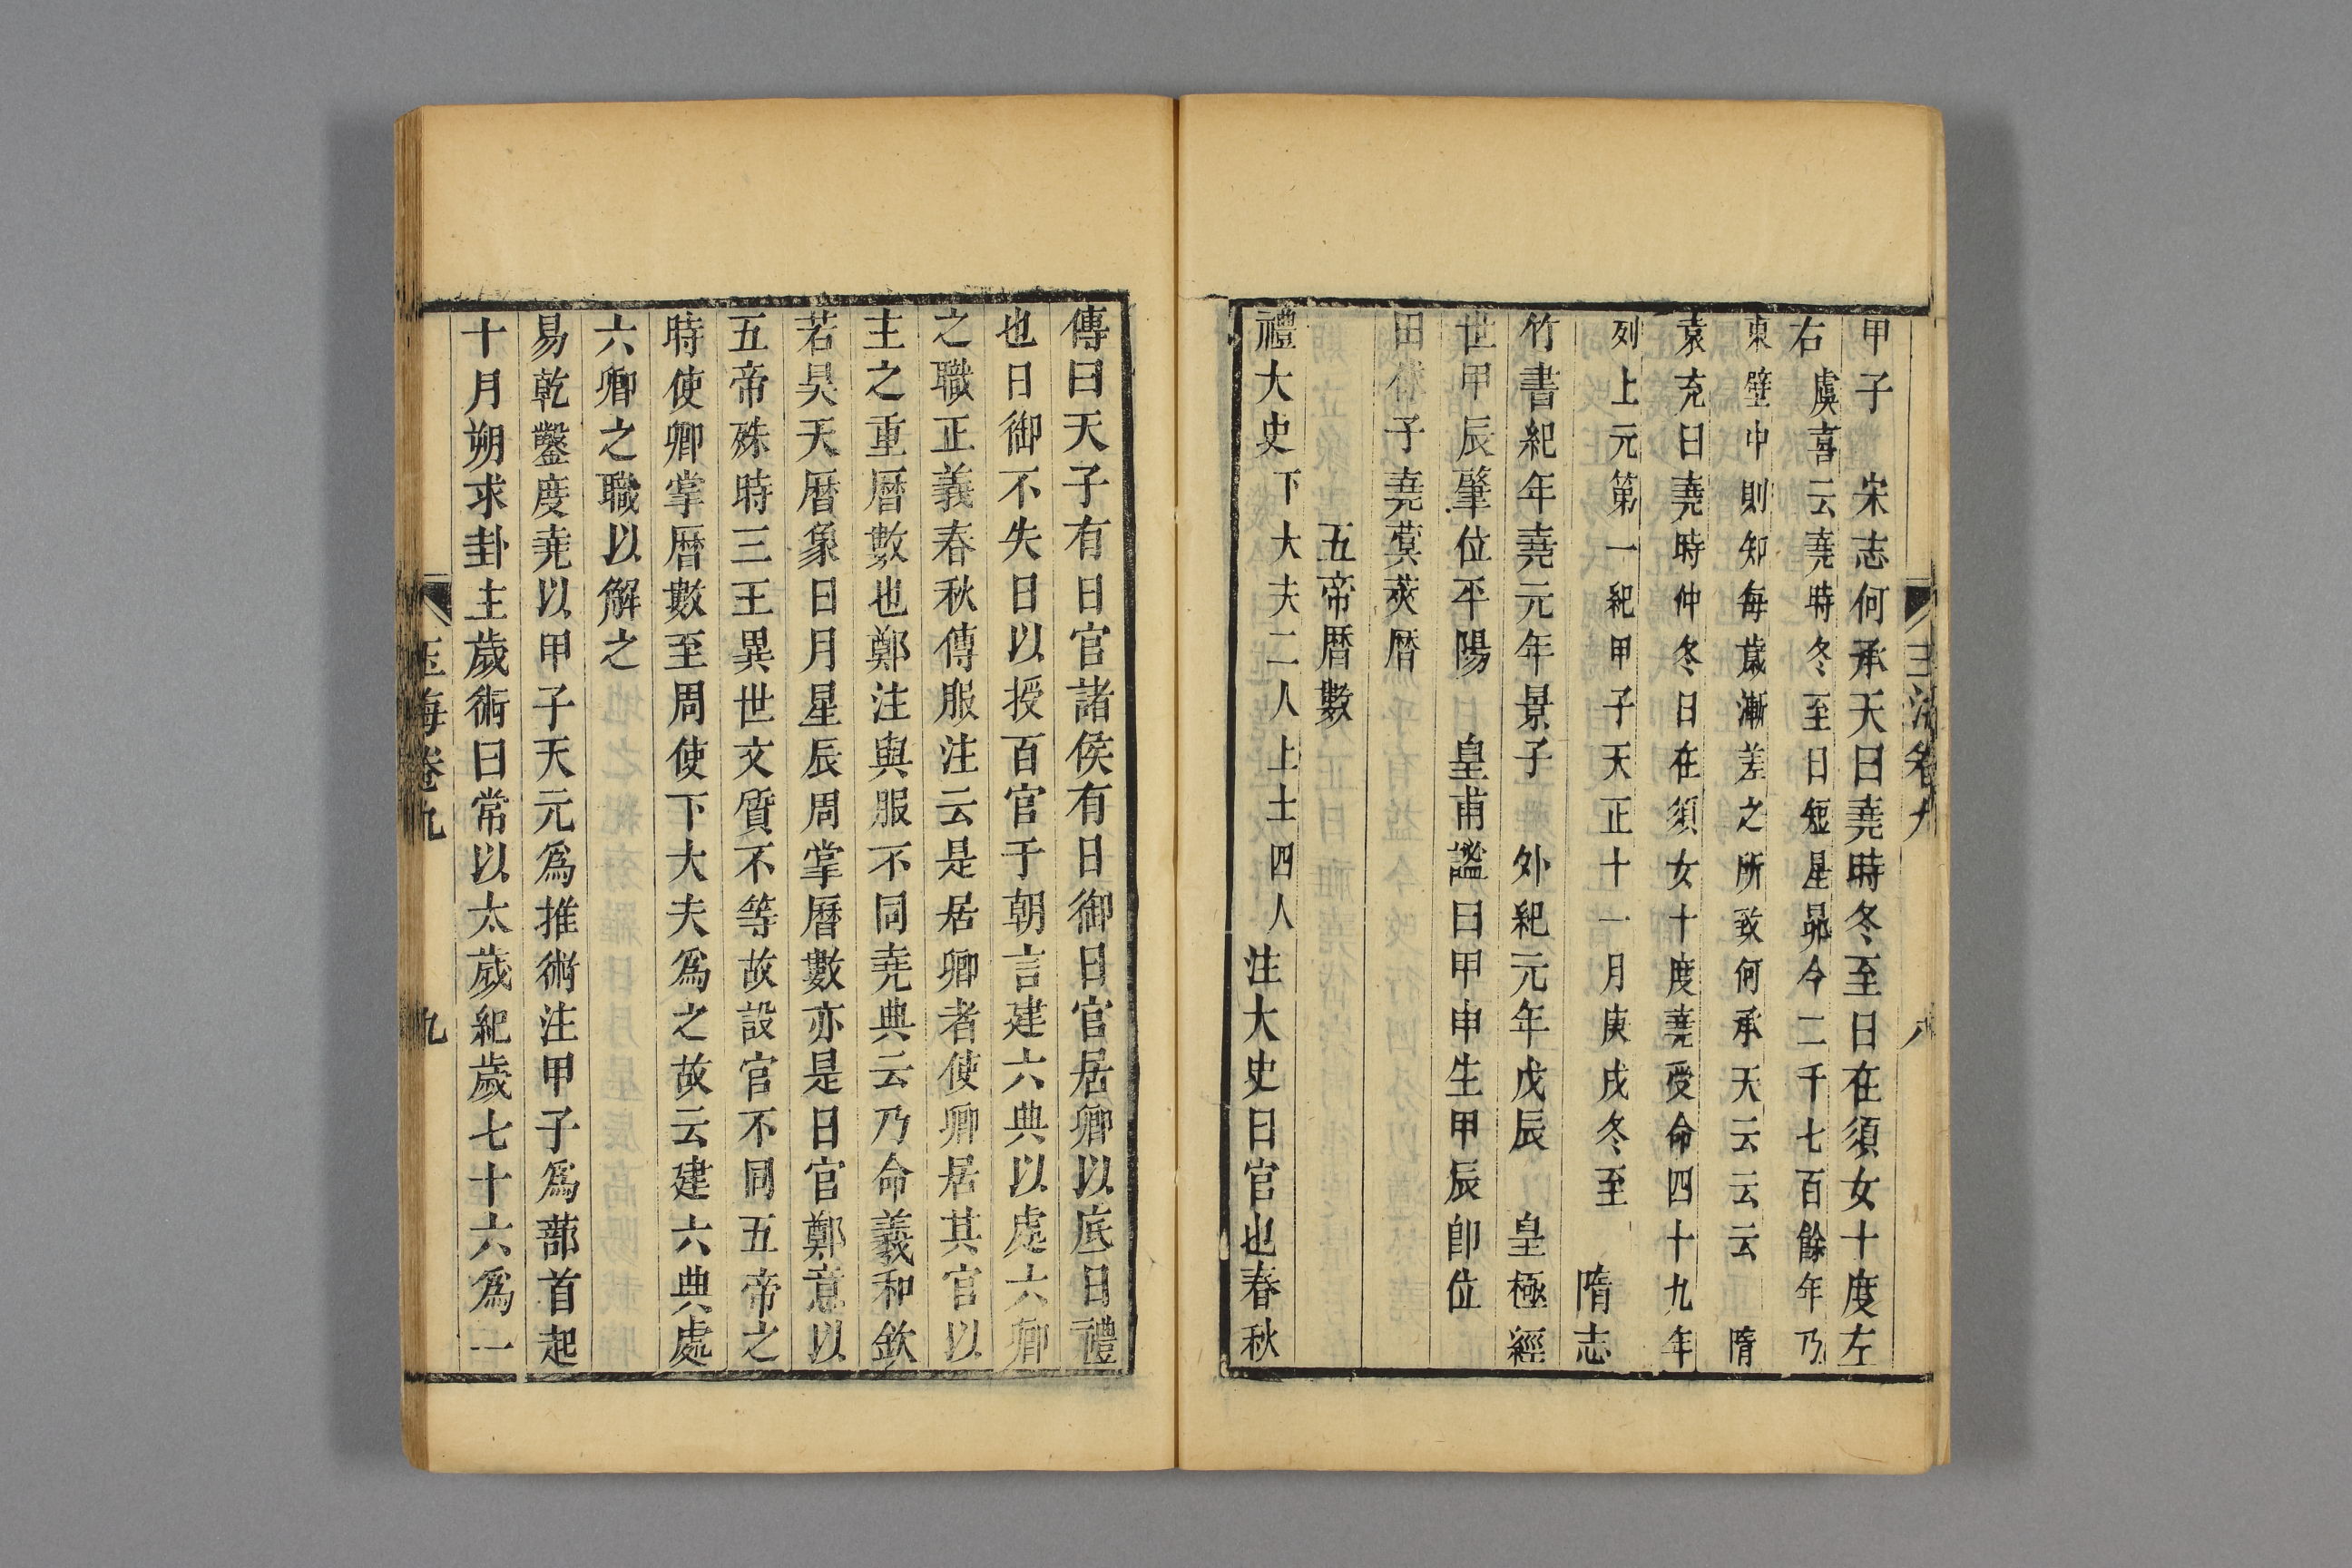 玉海卷九 八
甲子 宋志何承天曰堯時冬至日在須女十度左
右 虞喜云堯時冬至日短星昴今二千七百餘年乃
東壁中則知每歲漸差之所致何承天云云云 隋
袁充曰堯時仲冬日在須女十度堯受命四十九年
列上元第一紀甲子天正十一月庚戌冬至 隋志
竹書紀年堯元年景子 外紀元年戊辰 皇極經
世甲辰肇位平陽 皇甫謐曰甲申生甲辰卽位
田俅子堯蓂莢曆
五帝曆數
禮大史下大夫二人上士四人注大史日官也春秋
傳曰天子有日官諸侯有日御日官居卿以底日禮
也日御不失日以授百官于朝言建六典以處六卿
之職正義春秋傳服注云是居卿者使卿居其官以
主之重曆數也鄭注與服不同堯典云乃命羲和欽
若昊天曆象日月星辰周掌曆數亦是日官鄭意以
五帝殊時三王異世文質不等故設官不同五帝之
時使卿掌曆數至周使下大夫爲之故云建六典處
六卿之職以解之
易乾鑿度堯以甲子天元爲推術注甲子爲蔀首起
十月朔求卦主歲術曰常以太歲紀歲七十六爲一
玉海卷九 九